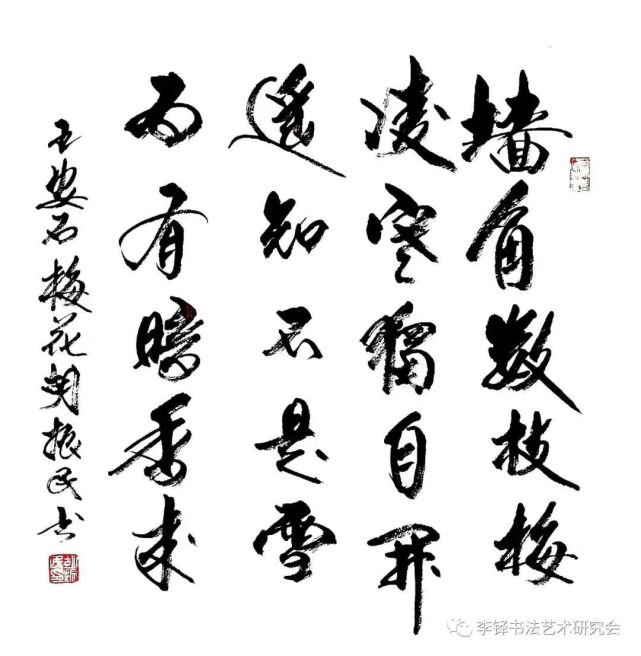 墙角数枝梅
凌寒独自开
遥知不是雪
为有暗香来
王安石梅花胡振民书
李铎书法艺术研究会